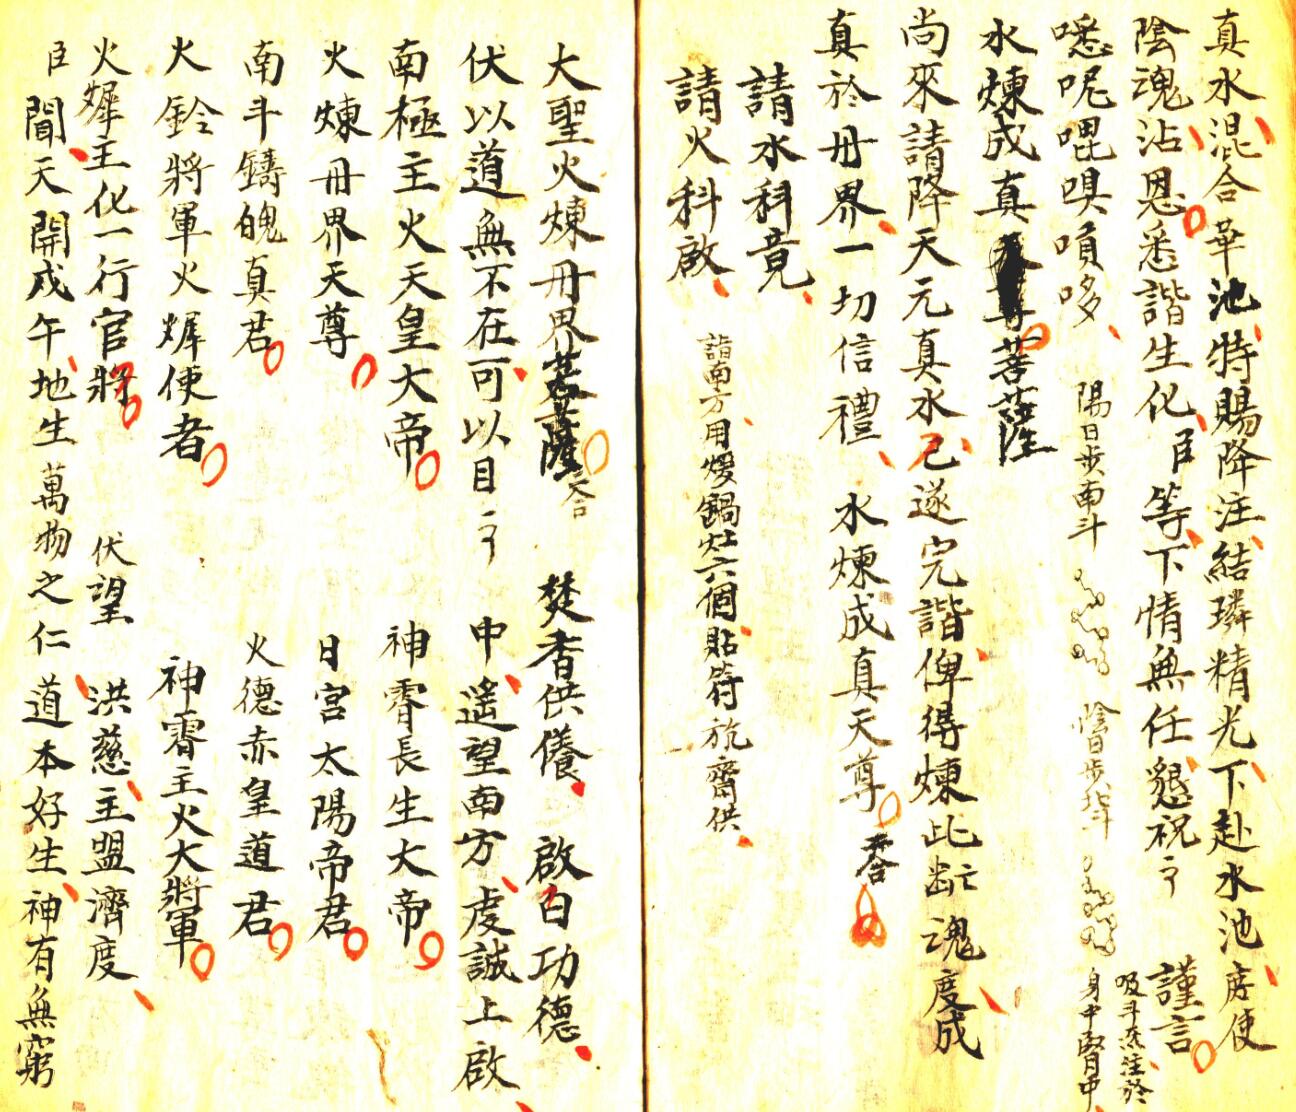 真水混合華池特賜降注結璘精光下赴水池庶使
陰魂沾恩悉諧生化臣等下情無任懇祝 謹言
噁呢哩嗅唄哆 陽日步南斗 陰日步北斗 吸斗炁注於
身中腎中
水煉成真菩薩
尚來請降天元真水已遂完諧俾得煉此幽亡魂度成
真於冊界一切信禮 水煉成真天尊 合
請水科竟
請火科啟 詣南方用煖鍋灶六個貼符旂齋供
大聖火煉冊界菩薩 合 焚香供養 啟白功德
伏以道無不在可以目 申遙望南方虔誠上啟
南極主火天皇大帝 神霄長生大帝
火煉冊界天尊 日宮太陽帝君
南斗鑄魄真君 火德赤皇道君
火鈴將軍火犀使者 神霄主火大將軍
火犀主化一行官將 伏望 洪慈主盟濟度
臣聞天開戌午地生萬物之仁道本好生神有無窮